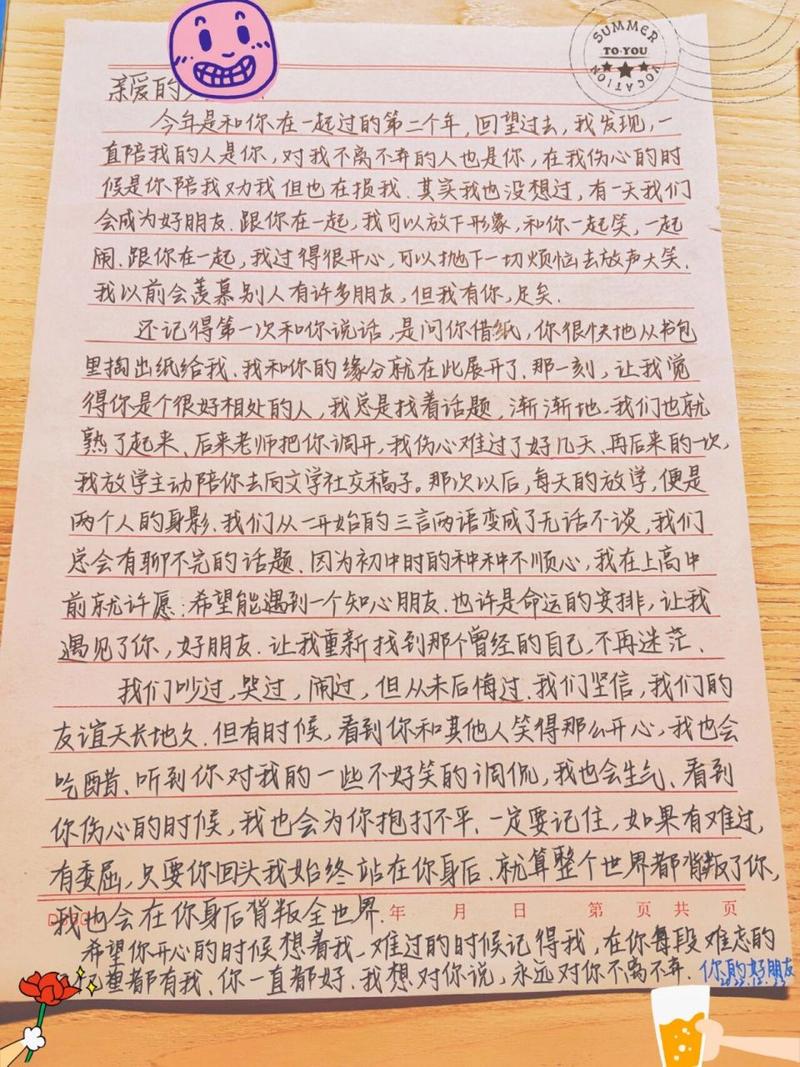 SUMMER
TO·YOU
VOCATION
亲爱的
今年是和你在一起过的第二个年,回望过去,我发现,一
直陪我的人是你,对我不离不弃的人也是你,在我伤心的时
候是你陪我劝我但也在损我.其实我也没想过,有一天我们
会成为好朋友.跟你在一起,我可以放下形象,和你一起笑,一起
闹.跟你在一起,我过得很开心,可以抛下一切烦恼去放声大笑.
我以前会羡慕别人有许多朋友,但我有你,足矣.
还记得第一次和你说话,是问你借纸,你很快地从书包
里掏出纸给我.我和你的缘分就在此展开了.那一刻,让我觉
得你是个很好相处的人,我总是找着话题,渐渐地.我们也就
熟了起来、后来老师把你调开,我伤心难过了好几天.再后来的一次,
我放学主动陪你去向文学社交稿子。那次以后,每天的放学,便是
两个人的身影.我们从一开始的三言两语变成了无话不谈,我们
总会有聊不完的话题.因为初中时的种种不顺心,我在上高中
前就许愿:希望能遇到一个知心朋友.也许是命运的安排,让我
遇见了你,好朋友.让我重新找到那个曾经的自己,不再迷茫.
我们吵过,哭过,闹过,但从未后悔过.我们坚信,我们的
友谊天长地久.但有时候,看到你和其他人笑得那么开心,我也会
吃醋、听到你对我的一些不好笑的调侃,我也会生气、看到
你伤心的时候,我也会为你抱打不平、一定要记住,如果有难过,
有委屈,只要你回头我始终站在你身后.就算整个世界都背叛了你,
我也会在你身后背叛全世界.
年 月 日 第 页共 页
希望你开心的时候想着我、难过的时候记得我,在你每段难忘的
里都有我.你一直都好.我想对你说,永远对你不离不弃.你的好朋友